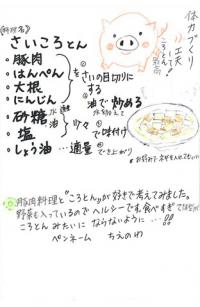 (料理名)
さいころとん
・豚肉
・はんぺん
・大根
・にんじん
を
さいの目切りに
する
油で炒める
・砂糖
・塩
少々
・しょう油…適量
で味付け
でき上がり
体力づくり
豚肉料理と"ころとん"が好きで考えてみました。
野菜も入っているのでヘルシーです。食べすぎて
ころとんみたいにならないように…!!
ペンネーム ちえのわ